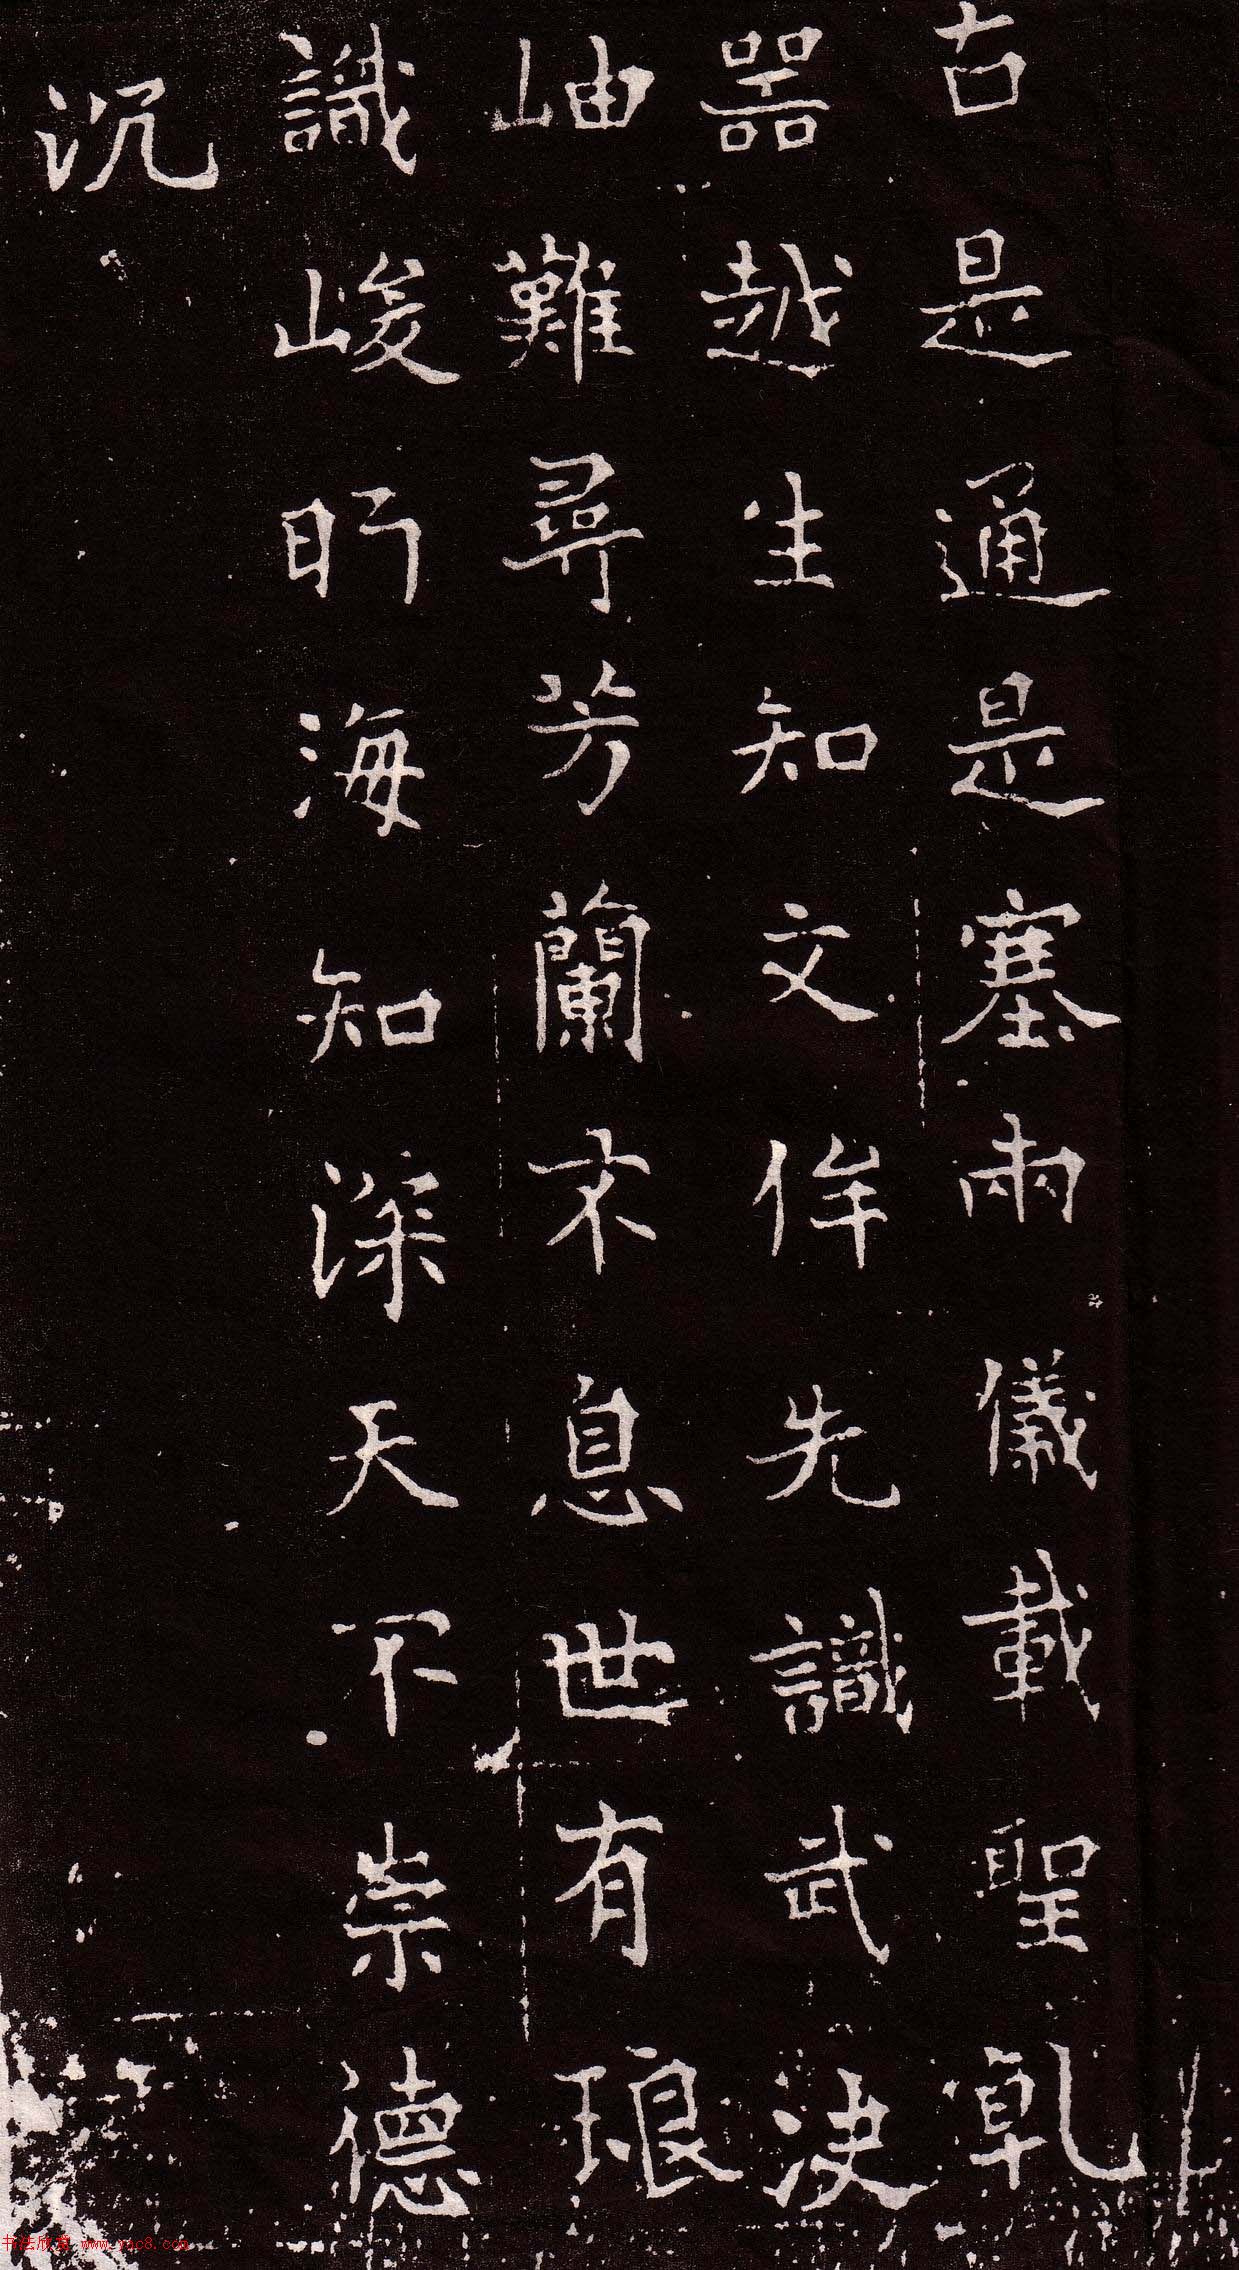 古是通是塞兩儀載聖軋
噐越生知文侔先識武決
岫難尋芳蘭不息世有琅
識峻眎海知深天不崇德
沉
书法欣赏 www.yac8.com